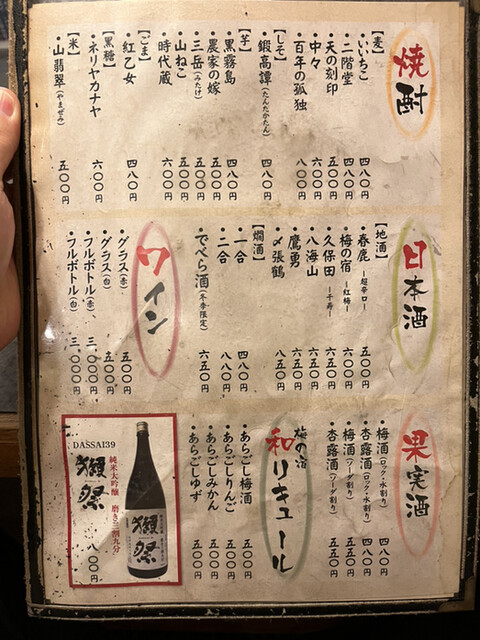 焼酎
【麦】
・いいちこ 四八〇円
・二階堂 四八〇円
・天の刻印 五〇〇円
・中々 六〇〇円
・百年の孤独 八〇〇円
【しそ】
・鍛高譚(たんたかたん) 四八〇円
【芋】
・黒霧島 四八〇円
・農家の嫁 五〇〇円
・三岳(みたけ) 五〇〇円
・山ねこ 五〇〇円
・時代蔵 六〇〇円
【ごま】
・紅乙女 四八〇円
【黒糖】
・ネリヤカナヤ 六〇〇円
【米】
・山翡翠(やませみ) 五〇〇円
日本酒
【地酒】
・春鹿 ー超辛口ー 五〇〇円
・梅の宿 ー紅梅ー 六〇〇円
・久保田 ー千寿ー 六五〇円
・八海山 六五〇円
・鷹勇 六五〇円
・〆張鶴 八五〇円
【燗酒】
・一合 四八〇円
・二合 八八〇円
・でべら酒(冬季限定) 六五〇円
ワイン
・グラス(赤) 五〇〇円
・グラス(白) 五〇〇円
・フルボトル(赤) 三、〇〇〇円
・フルボトル(白) 三、〇〇〇円
果実酒
・梅酒(ロック・水割り) 四八〇円
・杏露酒(ロック・水割り) 四八〇円
・梅酒(ソーダ割り) 五五〇円
・杏露酒(ソーダ割り) 五五〇円
梅の宿
和リキュール
・あらごし梅酒 五〇〇円
・あらごしりんご 五〇〇円
・あらごしみかん 五〇〇円
・あらごしゆず 五〇〇円
DASSAI39
獺祭
純米大吟醸 磨き三割九分
八〇〇円
獺祭